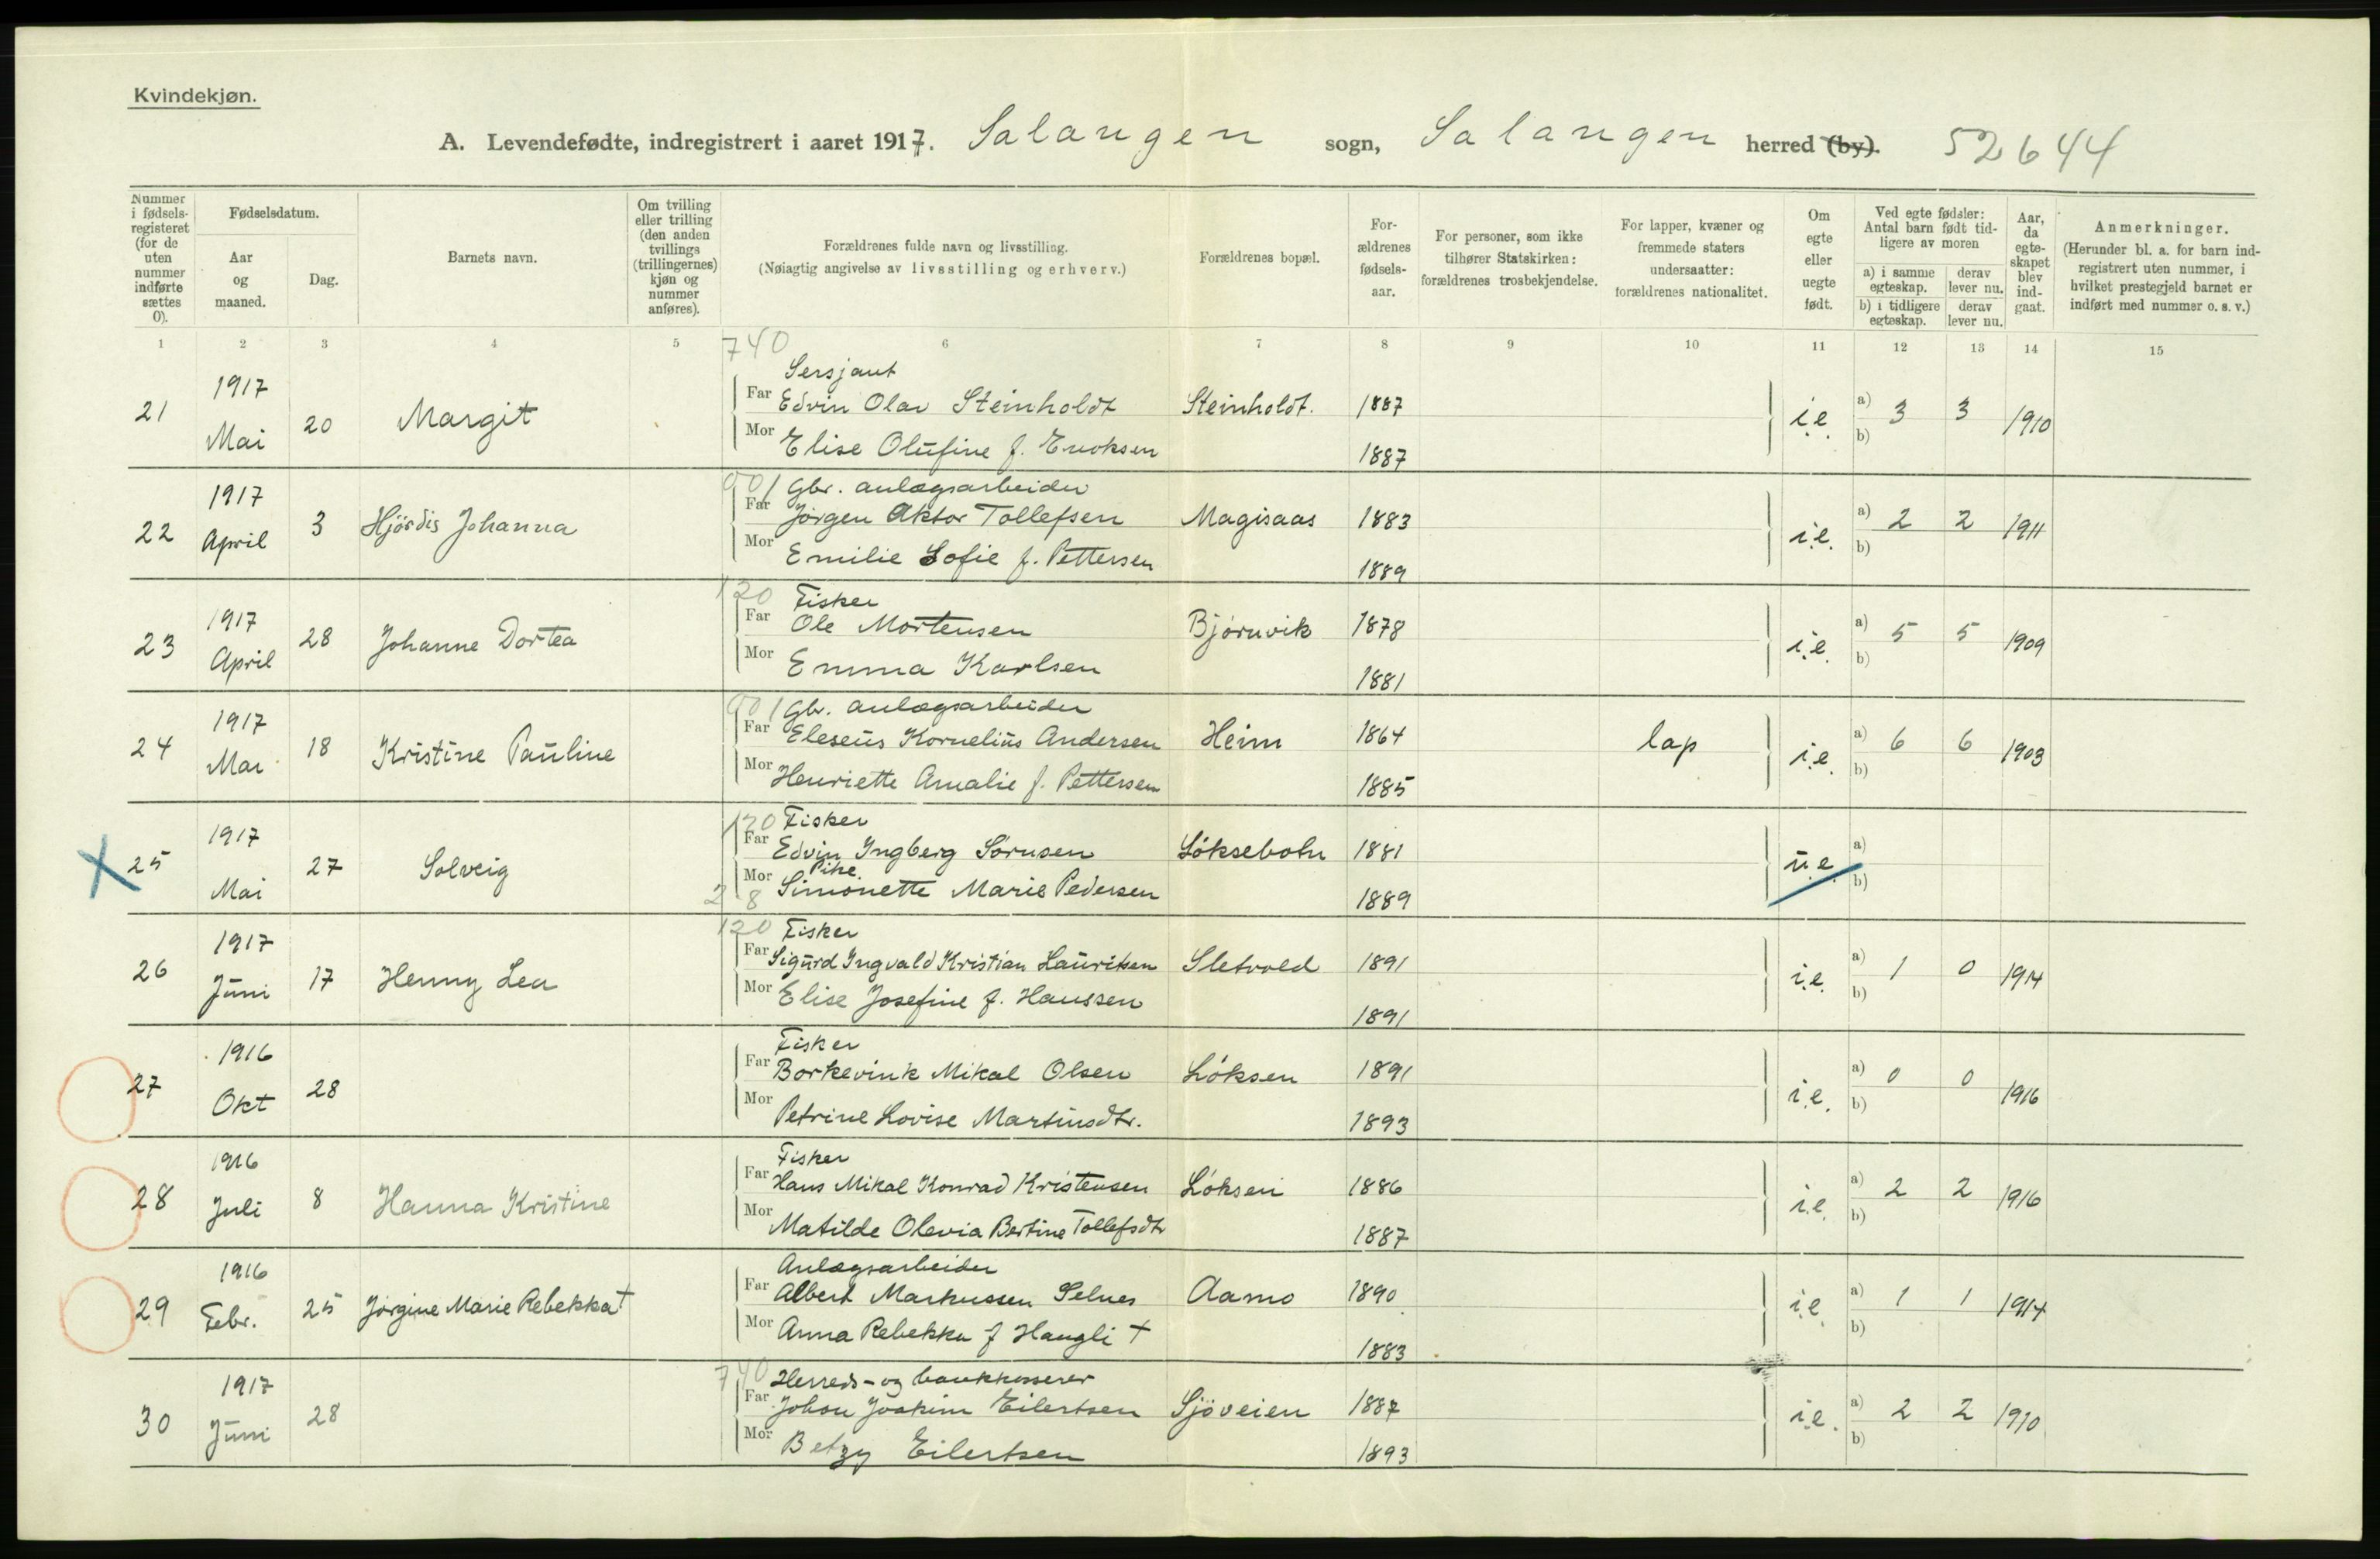 Kvindekjøn.
A. Levendefødte, indregistrert i aaret 1917. Salangen sogn, Salangen herred (by). 52644
Nummer i fødsels-registeret (for de uten nummer indførte sættes 0).
Fødselsdatum.
Aar og maaned.
Dag.
Barnets navn.
Om tvilling eller trilling (den anden tvillings (trillingernes) kjøn og nummer anføres).
Forældrenes fulde navn og livsstilling.
(Nøiagtig angivelse av livsstilling og erhverv.)
Forældrenes bopæl.
For-ældrenes fødsels-aar.
For personer, som ikke tilhører Statskirken: forældrenes trosbekjendelse.
For lapper, kvæner og fremmede staters undersaatter: forældrenes nationalitet.
Om egte eller uegte født.
Ved egte fødsler: Antal barn født tid-ligere av moren
a) i samme egteskap. derav lever nu.
b) i tidligere egteskap. derav lever nu.
Aar, da egte-skapet blev ind-gaat.
Anmerkninger.
(Herunder bl. a. for barn ind-registrert uten nummer, i hvilket prestegjeld barnet er indført med nummer o. s. v.)
1 2 3 4 5 6 7 8 9 10 11 12 13 14 15
740 Sersjant
21 1917 Mai 20 Margit Far Edvin Olav Steinholdt Steinholdt. 1887 i.e. a) 3 3 1910
Mor Elise Olufine f. Eriksen 1887 b)
901 Gbr. anlægsarbeider
22 1917 April 3 Hjördis Johanna Far Jörgen Aktor Tollefsen Magisaas 1883 i.e. a) 2 2 1911
Mor Emilie Sofie f. Pettersen 1889 b)
120 Fisker
23 1917 April 28 Johanne Dortea Far Ole Mortensen Bjørnvik 1878 i.e. a) 5 5 1909
Mor Emma Karlsen 1881 b)
901 Gbr. anlægsarbeider
24 1917 Mai 18 Kristine Pauline Far Eleseus Kornelius Andersen Heim 1864 lap i.e. a) 6 6 1903
Mor Henriette Amalie f. Pettersen 1885 b)
120 Fisker
25 1917 Mai 27 Solveig Far Edvin Ingberg Sørnsen Löksebotn 1881 u.e. a)
Pike.
Mor Simonette Marie Pedersen 1889 b)
120 Fisker
26 1917 Juni 17 Henny Lea Far Sigurd Ingvald Kristian Lauritsen Sletvold 1891 i.e. a) 1 0 1914
Mor Elise Josefine f. Hanssen 1891 b)
Fisker
27 1916 Okt 28 Far Borkevink Mikal Olsen Löksen 1891 i.e. a) 0 0 1916
Mor Petrine Lovise Martinsdtr. 1893 b)
Fisker
28 1916 Juli 8 Hanna Kristine Far Hans Mikal Konrad Kristensen Löksen 1886 i.e. a) 2 2 1916
Mor Matilde Olevia Bertine Tollefsdtr 1887 b)
Anlægsarbeider
29 1916 Febr. 25 Jörgine Marie Rebekka † Far Albert Markussen Selnes Aamo 1890 i.e. a) 1 1 1914
Mor Anna Rebekka f Haugli † 1883 b)
740 Herreds- og bankkasserer
30 1917 Juni 28 Far Johan Joakim Eilertsen Sjöveien 1887 i.e. a) 2 2 1910
Mor Betzy Eilertsen 1893 b)